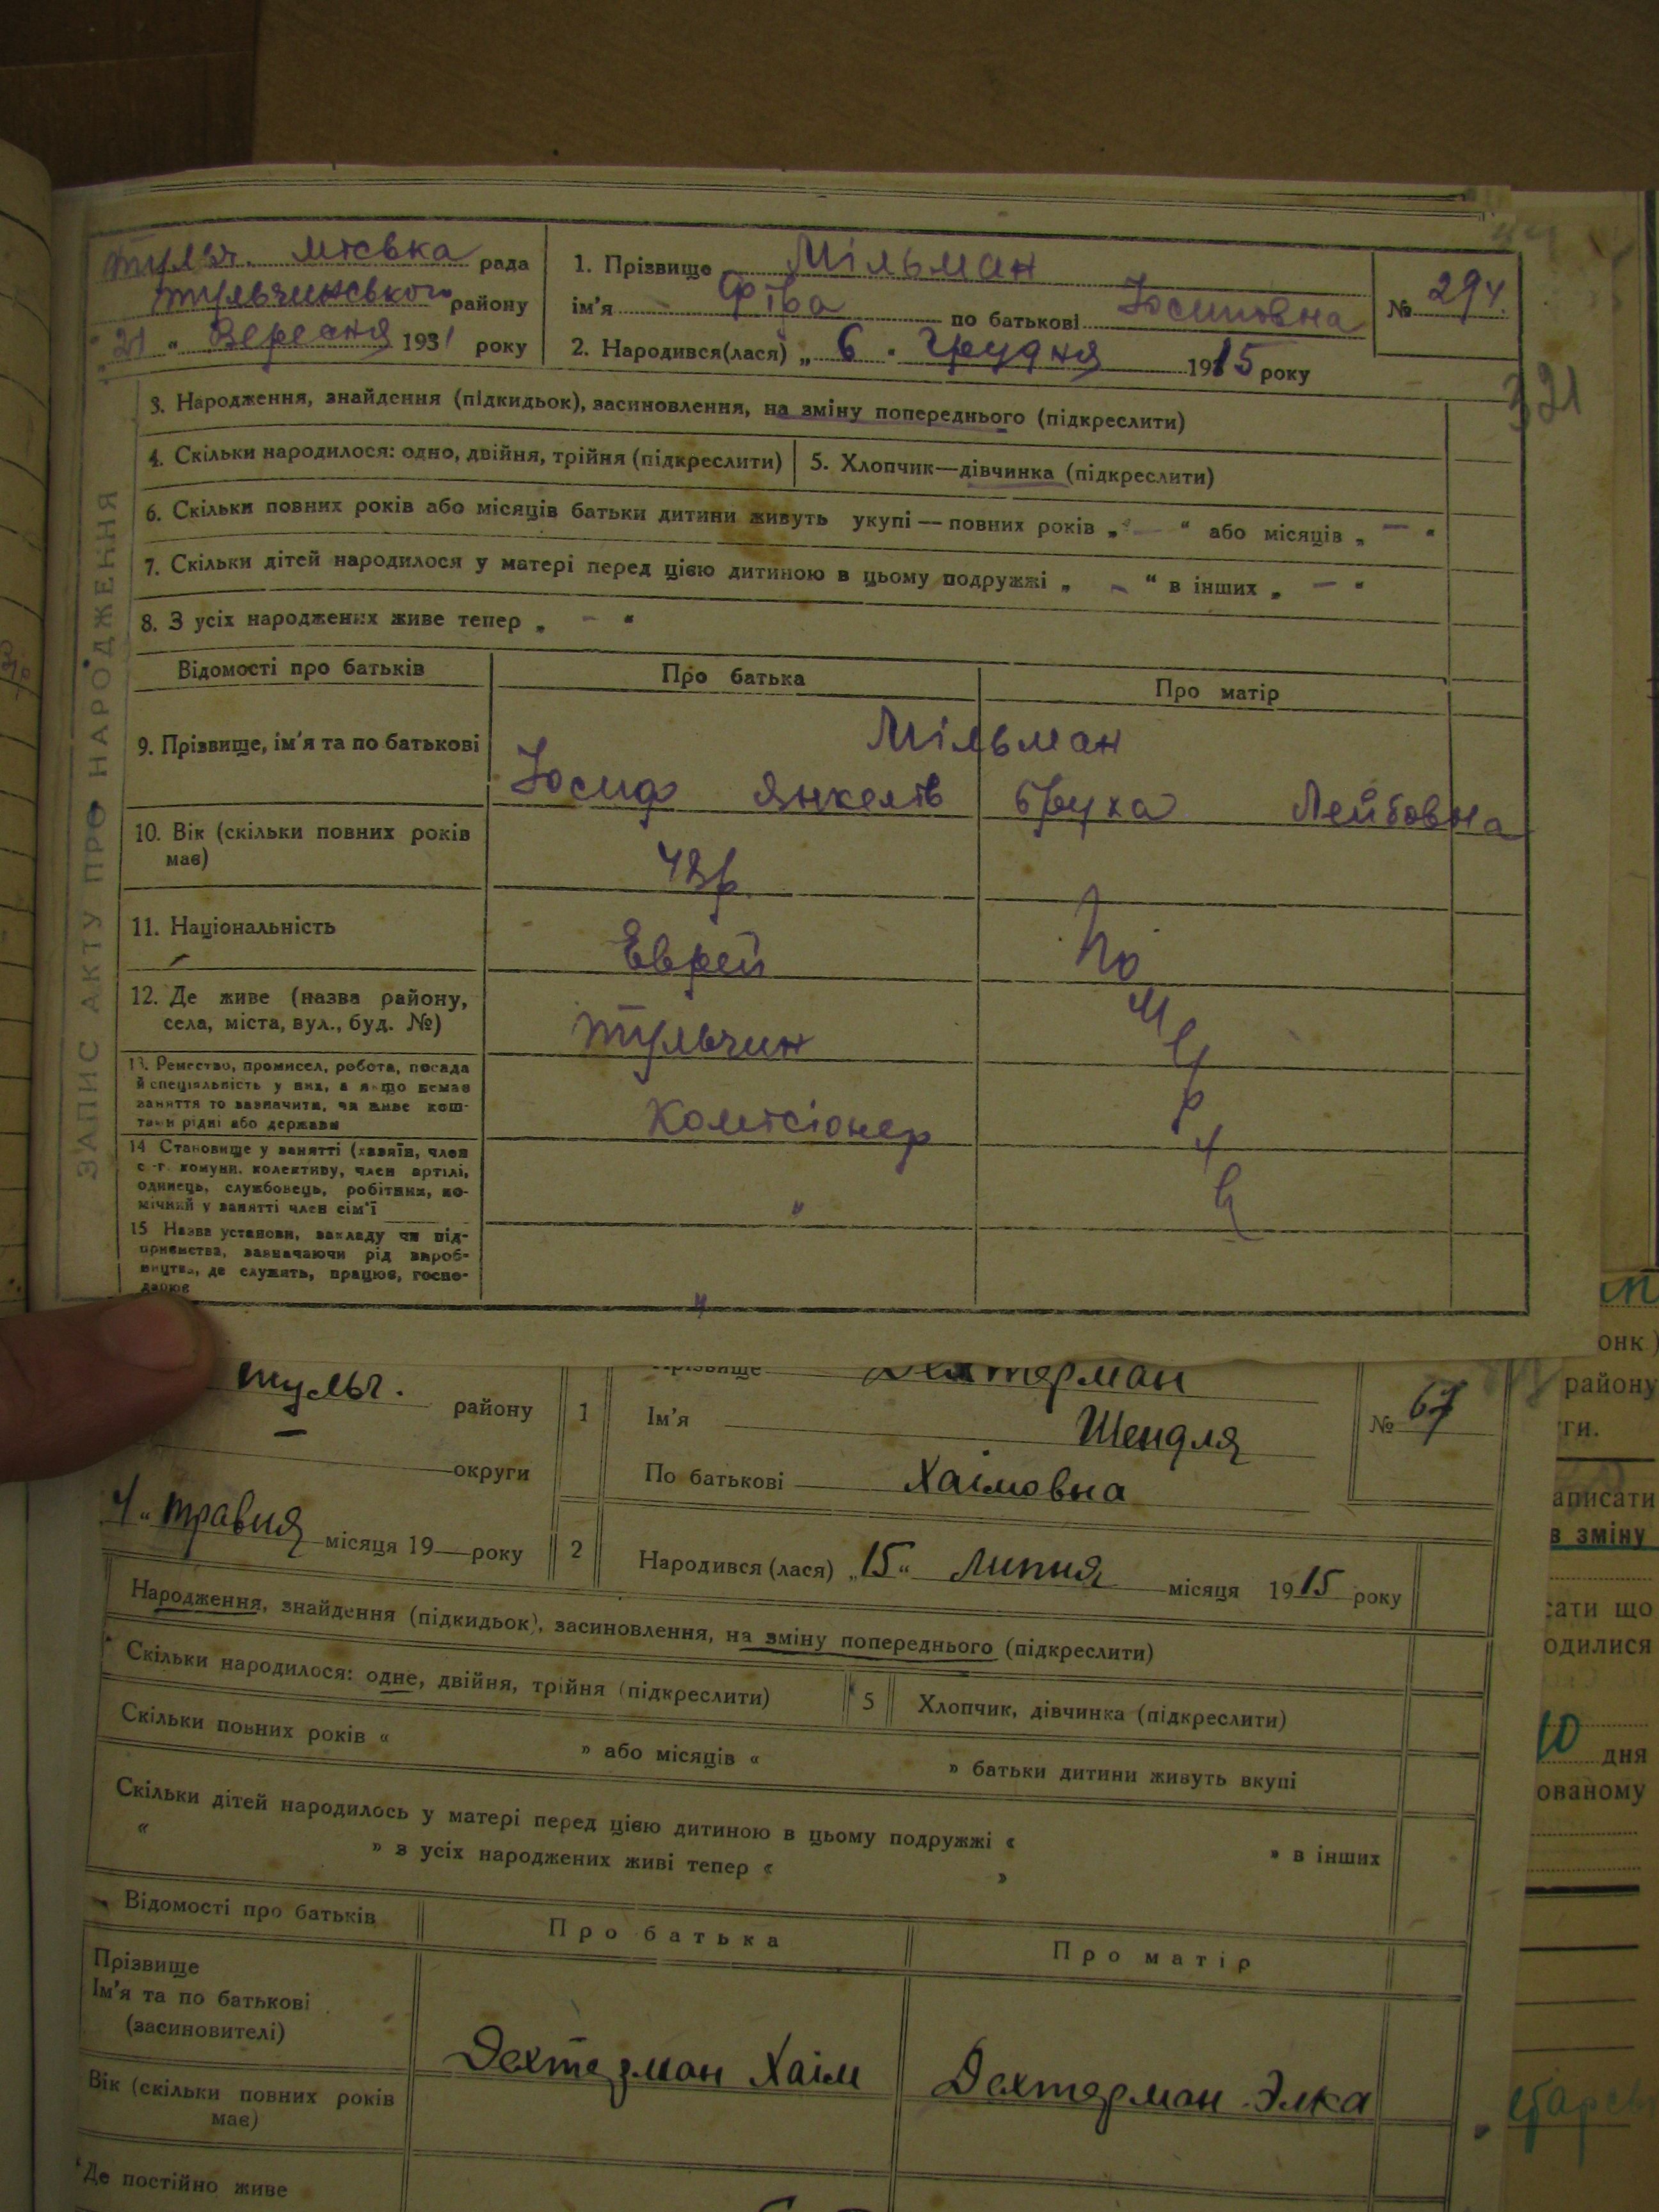 тульч. міська рада
тульчинського району
21 " Вересня 1931 року
1. Прізвище Мільман
ім'я Фіра по батькові Іосиповна
№ 294.
2. Народився(лася) „ 6 " Грудня 1915 року
321
ЗАПИС АКТУ ПРО НАРОДЖЕННЯ
3. Народження, знайдення (підкидьок), засиновлення, на зміну попереднього (підкреслити)
4. Скільки народилося: одно, двійня, трійня (підкреслити)
5. Хлопчик—дівчинка (підкреслити)
6. Скільки повних років або місяців батьки дитини живуть укупі — повних років „ — “ або місяців „ — “
7. Скільки дітей народилося у матері перед цією дитиною в цьому подружжі „ – “ в інших „ – “
8. З усіх народжених живе тепер „ – “
Відомості про батьків
Про батька
Про матір
9. Прізвище, ім'я та по батькові
Мільман
Іосиф Янкелів
Бруха Лейбовна
10. Вік (скільки повних років
має)
43р
11. Національність
Еврей
Померла
12. Де живе (назва району,
села, міста, вул., буд. №)
тульчин
13. Ремество, промисел, робота, посада
й спеціяльність у них, а якщо немає
заняття то зазначити, чи живе кош-
тами рідні або держави
Комісіонер
14 Становище у занятті (хазяїн, член
с.-г. комуни, колективу, член артілі,
одинець, службовець, робітник, по-
мічний у занятті член сім'ї
"
15 Назва установи, закладу чи під-
приємства, зазначаючи рід вироб-
ництва, де служить, працює, госпо-
дарює
тульч. району
— округи
4 " травня місяця 19 — року
1 Прізвище Дехтерман
Ім'я Шендля
По батькові Хаімовна
№ 67
2 Народився (лася) „15“ Липня місяця 1915 року
Народження, знайдення (підкидьок), засиновлення, на зміну попереднього (підкреслити)
Скільки народилося: одне, двійня, трійня (підкреслити)
5 Хлопчик, дівчинка (підкреслити)
Скільки повних років « » або місяців « » батьки дитини живуть вкупі
Скільки дітей народилось у матері перед цією дитиною в цьому подружжі «
« » з усіх народжених живі тепер « » » в інших
Відомості про батьків
Про батька
Про матір
Прізвище
Ім'я та по батькові
(засиновителі)
Дехтерман Хаім
Дехтерман Элка
Вік (скільки повних років
має)
Де постійно живе
онк.)
району
ги.
аписати
в зміну
сати що
одилися
10 дня
ованому